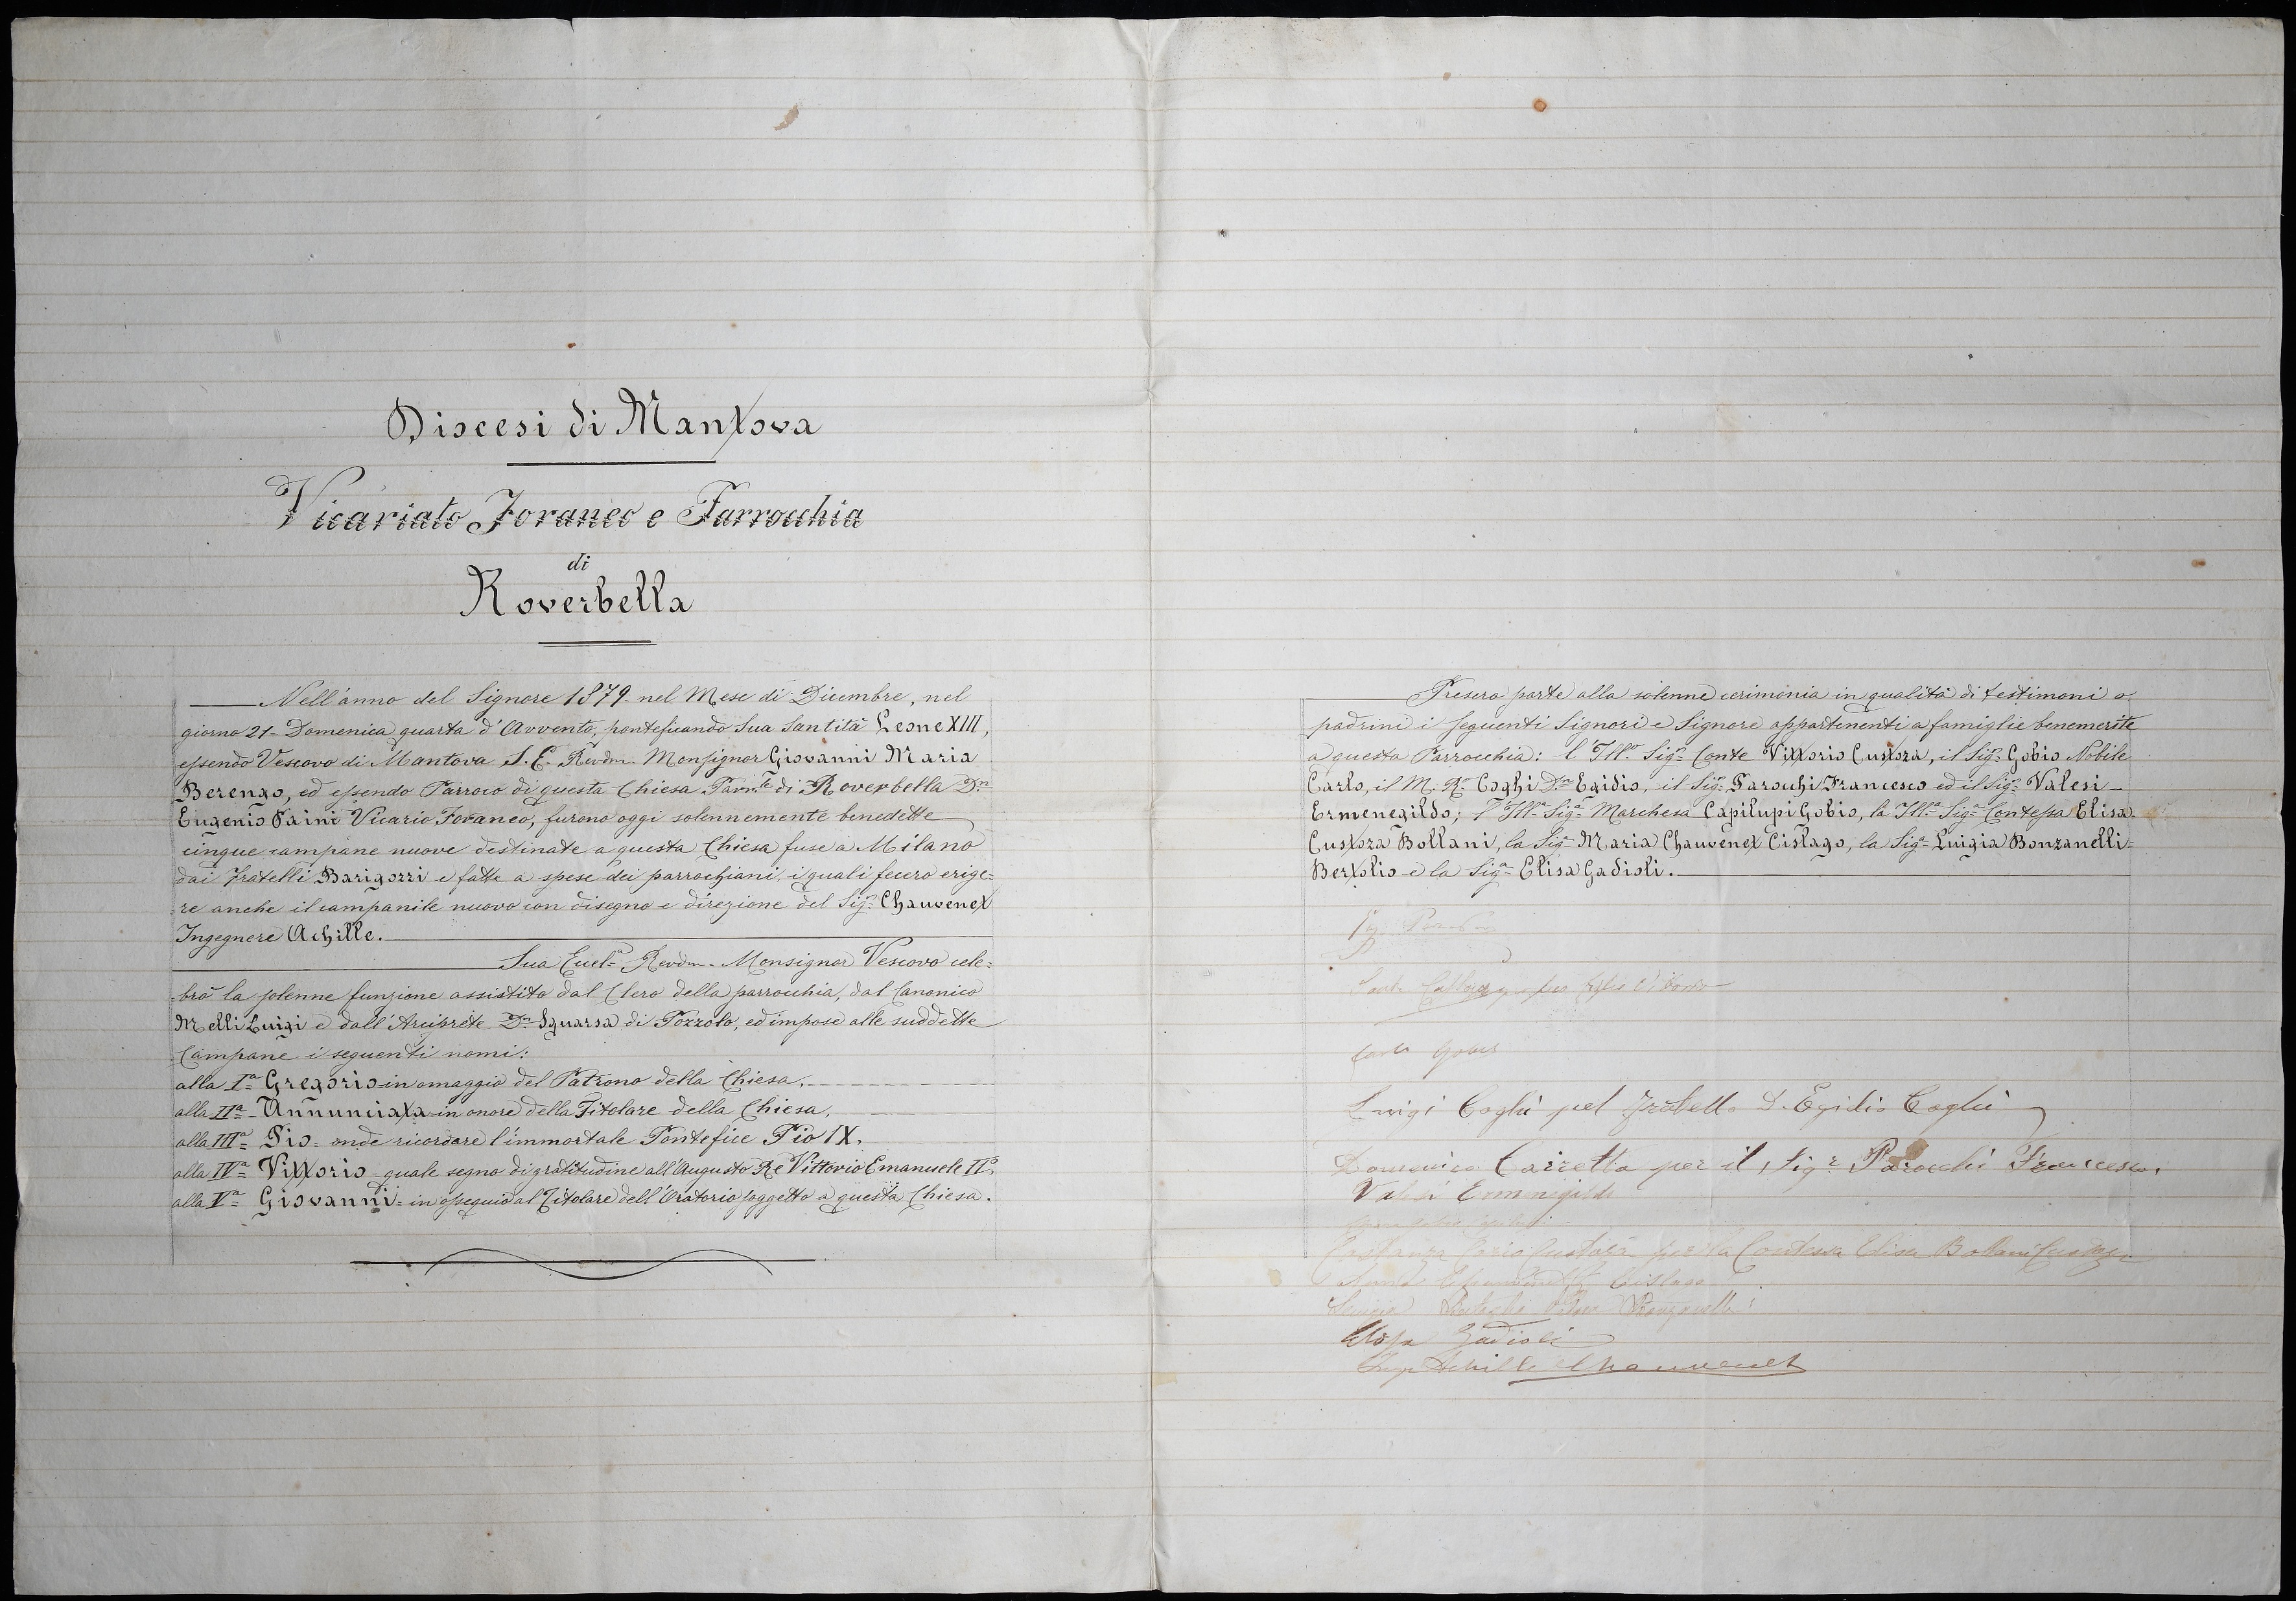 Diocesi di Mantova
Vicariato Foraneo e Parrocchia
di
Roverbella
Nell'anno del Signore 1879 nel Mese di Dicembre, nel
giorno 21 - Domenica quarta d'Avvento, pontificando Sua Santità Leone XIII,
essendo Vescovo di Mantova S. E. Revdm. Monsignor Giovanni Maria
Berengo, ed essendo Parroco di questa Chiesa Parrle di Roverbella Dn
Eugenio Faini Vicario Foraneo, furono oggi solennemente benedette
cinque campane nuove destinate a questa Chiesa fuse a Milano
dai fratelli Barigozzi e fatte a spese dei parrochiani, i quali fecero erige=
re anche il campanile nuovo con disegno e direzione del Sigr Chauvenet
Ingegnere Achille.
Sua Eccla Revdm. Monsignor Vescovo cele=
brò la solenne funzione assistito dal Clero della parrocchia, dal Canonico
Melli Luigi e dall'Arciprete Dn Sguarsa di Pozzolo, ed impose alle suddette
Campane i seguenti nomi:
alla Ia Gregorio in omaggio del Patrono della Chiesa.
alla IIa Annunciata in onore della Titolare della Chiesa.
alla IIIa Pio = onde ricordare l'immortale Pontefice Pio IX.
alla IVa Vittorio - quale segno di gratitudine all'Augusto Re Vittorio Emanuele II.
alla Va Giovanni = in ossequio al Titolare dell'Oratorio soggetto a questa Chiesa.
Presero parte alla solenne cerimonia in qualità di testimoni o
padrini i seguenti Signori e Signore appartinenti a famiglie benemerite
a questa Parrocchia: l'Illo Sigr Conte Vittorio Custoza, il Sigr Gobio Nobile
Carlo, il M. Ro Coghi Dn Egidio, il Sigr Parocchi Francesco ed il Sigr Valesi-
Ermenegildo; l'Illa Siga Marchesa Capilupi Gobio, la Illa Siga Contessa Elisa=
Custoza Bollani, la Siga Maria Chauvenet Cislago, la Siga Luigia Bonzanelli=
Bertolio e la Siga Elisa Gadioli.
Carlo Gobio
Luigi Coghi pel fratello D. Egidio Coghi
Domenico Carretta per il Sigr Parocchi Francesco
Valesi Ermenegildo
per la Contessa Elisa Bollani Custoza
Cislago
Elisa Gadioli
Ing Achille Chauvenet